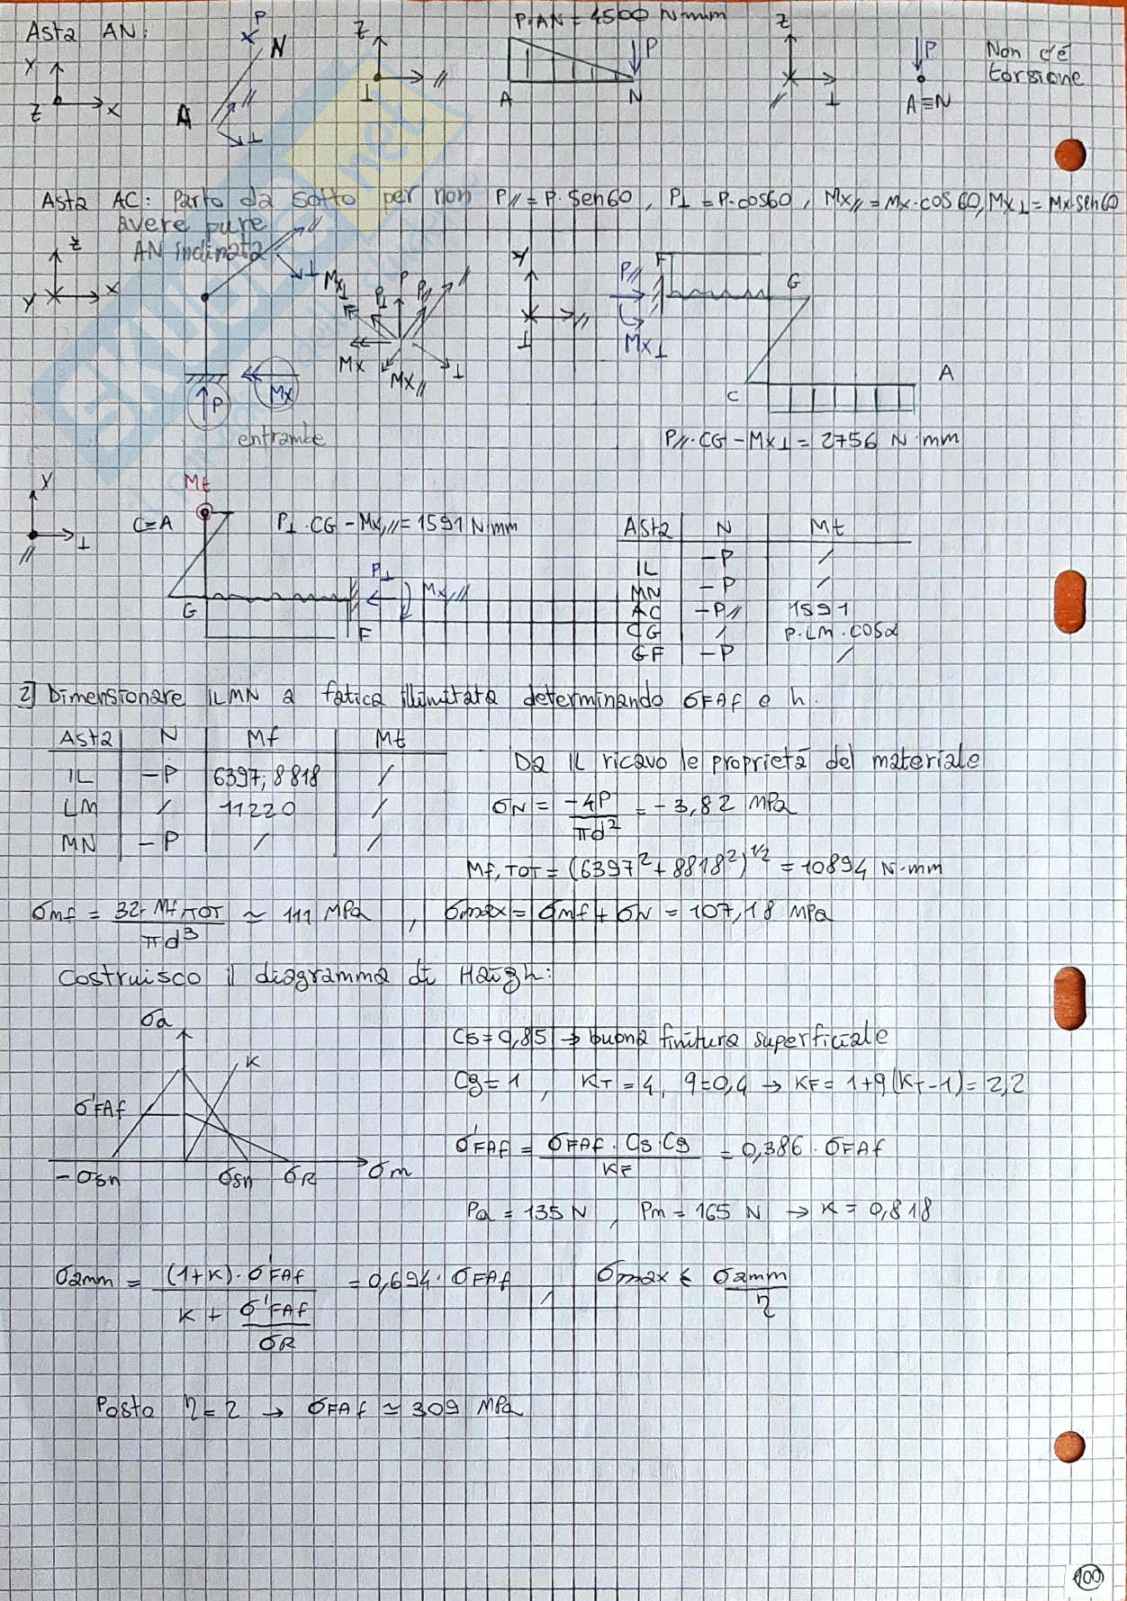 Asta AN:
P
N
Y
Z
X
A
//
⊥
Z
//
⊥
P·AN = 4500 N·mm
P
A
N
Z
//
⊥
P
A≡N
Non c'è
torsione
Asta AC: Parto da sotto per non
avere pure
AN inclinata
P// = P·sen60, P⊥ = P·cos60, Mx// = Mx·cos60, Mx⊥ = Mx·sen60
Z
Y
X
//
⊥
P
Mx
entrambe
Mx⊥
P⊥
P
P//
//
Mx
Mx//
⊥
Y
//
⊥
P//
Mx⊥
F
G
C
A
P//·CG - Mx⊥ = 2756 N·mm
Y
//
⊥
Mt
C=A
G
F
P⊥
Mx//
P⊥·CG - Mx,// = 1591 N·mm
Asta N Mt
IL -P /
MN -P /
AC -P// 1591
CG / P·LM·cosα
GF -P /
2] Dimensionare ILMN a fatica illimitata determinando σFAf e h.
Asta N Mf Mt
IL -P 6397; 8818 /
LM / 11220 /
MN -P / /
Da IL ricavo le proprietà del materiale
σN = -4P/πd² = -3,82 MPa
Mf,TOT = (6397² + 8818²)^1/2 = 10894 N·mm
σmf = 32·Mf,TOT/πd³ ≃ 111 MPa, σmax = σmf + σN = 107,18 MPa
Costruisco il diagramma di Haigh:
σa
K
σ'FAf
-σsn
σsn
σR
σm
Cs = 0,85 → buona finitura superficiale
Cg = 1, KT = 4, q = 0,4 → KF = 1+q(KT-1) = 2,2
σ'FAf = σFAf·Cs·Cg/KF = 0,386·σFAf
Pa = 135 N, Pm = 165 N → K = 0,818
σamm = (1+K)·σ'FAf/(K + σ'FAf/σR) = 0,694·σFAf, σmax ≤ σamm/η
Posto η = 2 → σFAf ≃ 309 MPa
100
SKUOLA.net